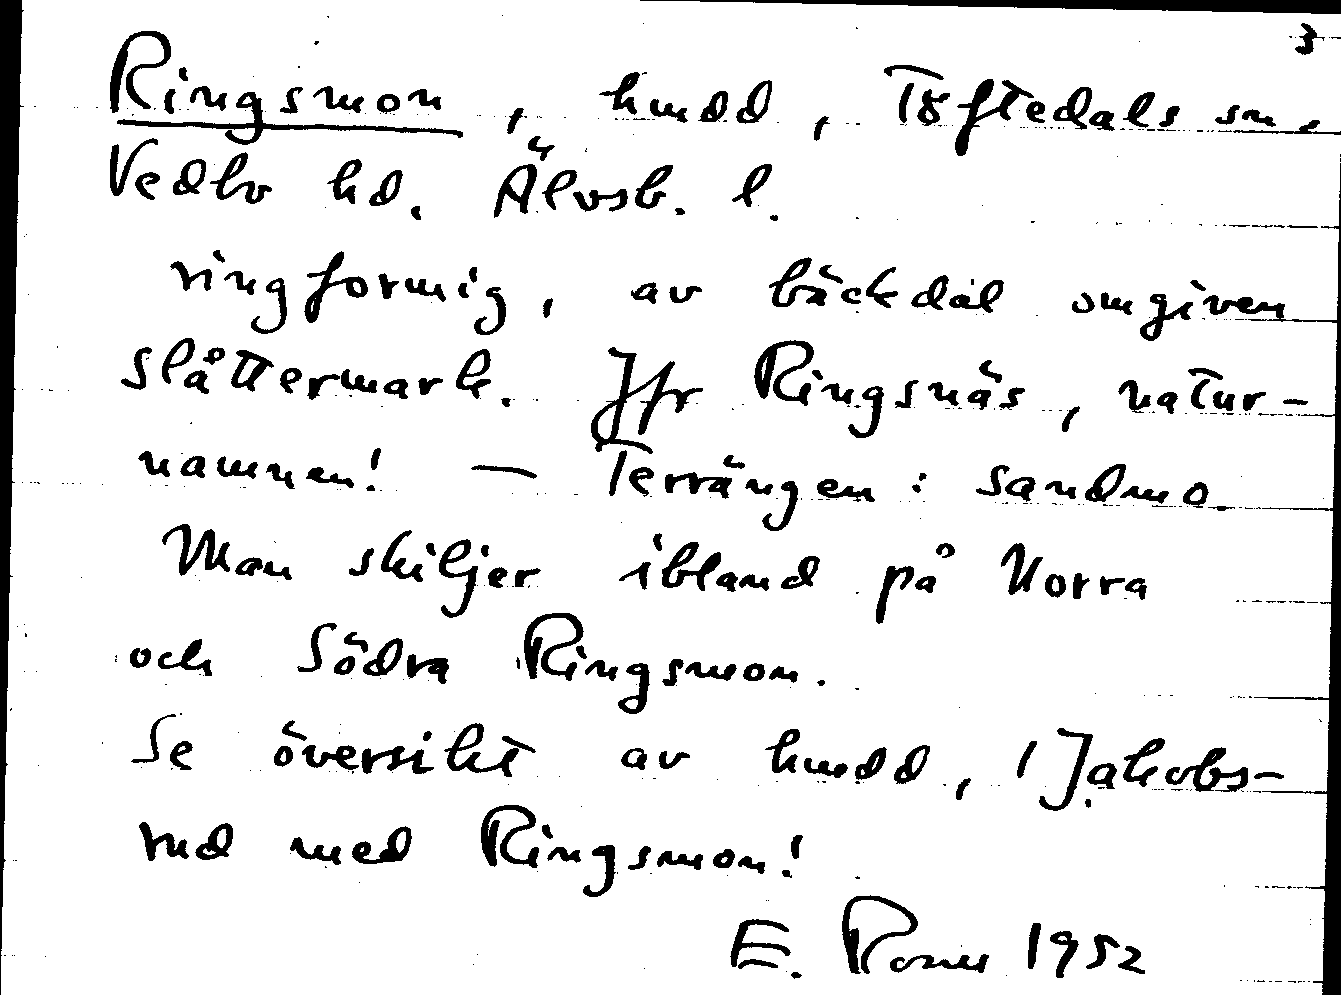 3
Ringsmon, hmdd, Töftedals sn.
Vedbo hd. Älvsb. l.
ringformig, av bäckdal omgiven
slåttermark. Jfr Ringsnäs, natur-
namnen! — Terrängen: sandmo.
Man skiljer ibland på Norra
och Södra Ringsmon.
Se översikt av hmdd, 1 Jakobs-
rud med Ringsmon!
E. 1952